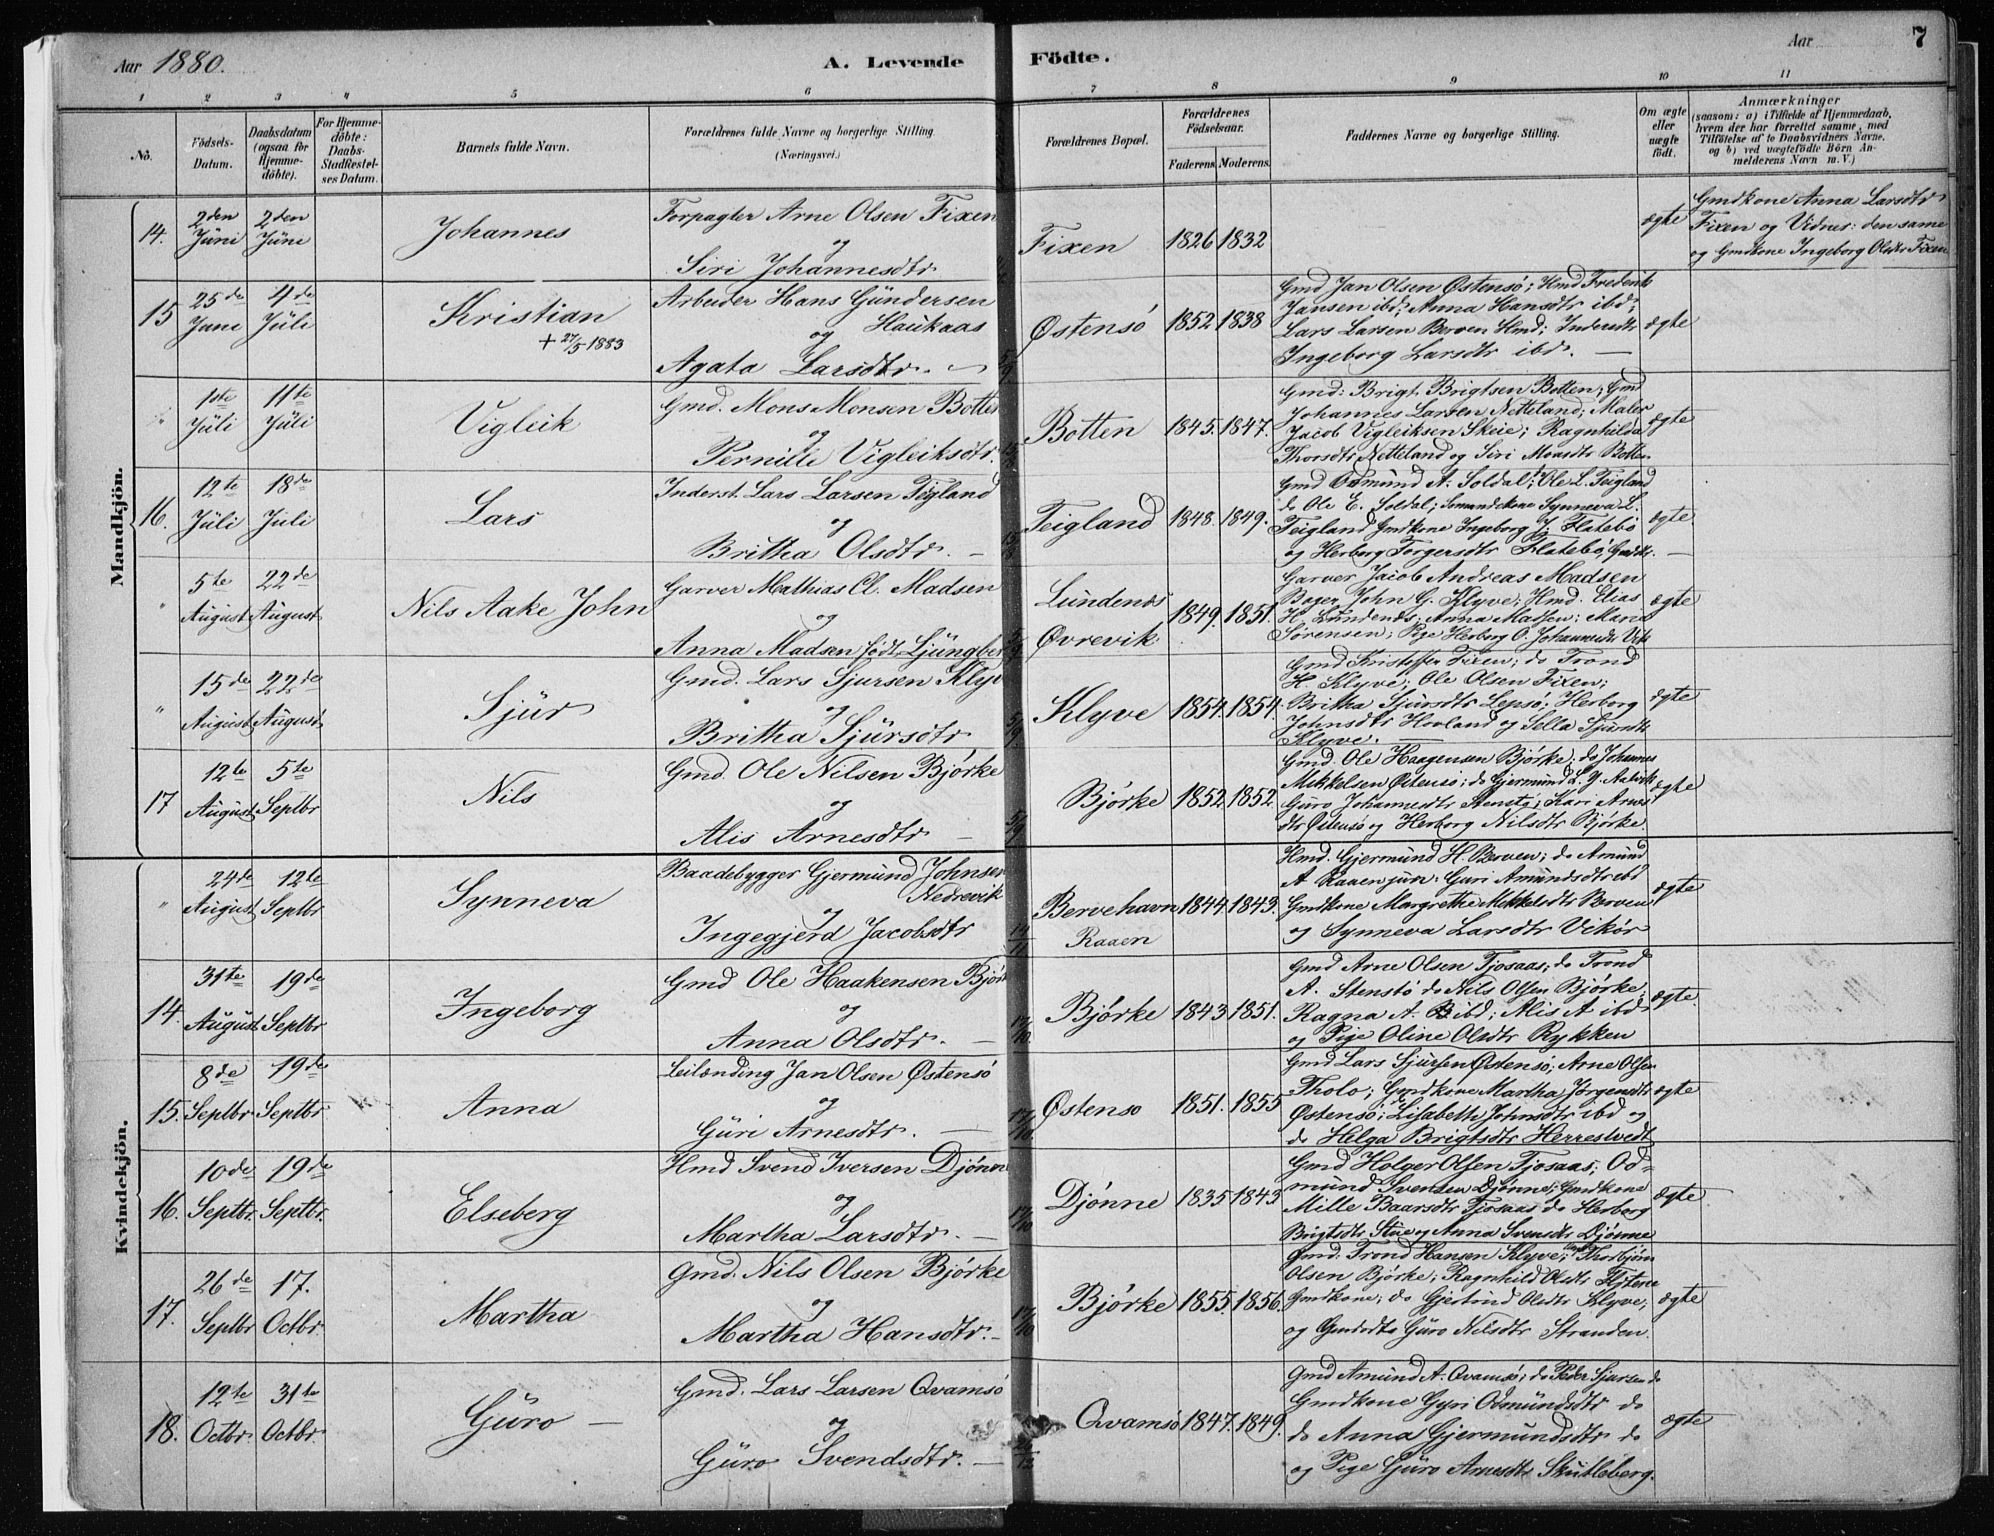 Aar 1880.
A. Levende
Födte.
Aar
7
1 2 3 4 5 6 7 8 9 10 11
No.
Födsels-Datum.
Daabsdatum (ogsaa for Hjemme-döbte).
For Hjemme-döbte: Daabs-Stadfæstel-ses Datum.
Barnets fulde Navn.
Forældrenes fulde Navne og borgerlige Stilling.
(Næringsvei.)
Forældrenes Bopæl.
Forældrenes Födselsaar.
Faderens. Moderens.
Faddernes Navne og borgerlige Stilling.
Om ægte eller uægte født.
Anmærkninger
(saasom: a) i Tilfælde af Hjemmedaab, hvem der har forrettet samme, med Tilföielse af to Daabsvidners Navne. og b) ved uægtefödte Börn An-melderens Navn m. V.)
Mandkjön.
14. 2den Jüni 2den Jüni
Johannes
Forpagter Arne Olsen Fixen
og
Siri Johannesdtr
Fixen 1826 1832
ægte
Gmdkone Anna Larsdtr
Fixen og Vidner: den same
og Gmdkone Ingeborg Olsdtr Fixen
15 25de Juni 4de Jüli
Kristian
+ 27/5 1883
Arbeider Hans Gündersen
Haukaas
og
Agata Larsdtr.
Østensö 1852 1838
Gmd Jan Olsen Østensö; Hmd Frederik
Jansen ibd; Anna Hansdtr ibd;
Lars Larsen Berven Hmd; Inderstdtr
Ingeborg Larsdtr ibd.
ægte
" 1ste Jüli 11te Jüli
Vigleik
Gmd. Mons Monsen Botten
og
Pernille Vigleiksdtr.
Botten 1845. 1847.
Gmd: Brigt. Brigtsen Botten; Gmd
Johannes Larsen Netteland; Maler
Jacob Vigleiksen Skeie; Ragnhilda
Thorsdtr Netteland og Siri Monsdtr Botten
ægte
16. 12te Jüli 18de Juli
Lars
Inderst. Lars Larsen Teigland
og
Britha Olsdtr.
Teigland 1848. 1849.
Gmd Odmund A. Soldal; Ole L. Teigland
do Ole E. Soldal; Synneva L.
Teigland Gmdkone Ingeborg J. Flatebö
og Herborg Torgersdtr Flatebö, Gmdtr.
ægte
" 5te August 22de August
Nils Aake John
Garver Mathias Cl. Madsen
og
Anna Madsen födt Ljüngber
Lundenæs
Øvrevik
1849. 1851.
Garver Jacob Andreas Madsen
Bager John G. Klyve; Hmd. Elias
H. Lündenæs; Anna Madsen; Maria
Sørensen; Pige Herborg O. Johannesdtr Vik
ægte
" 15de August 22de August
Sjür
Gmd. Lars Sjursen Klyv
og
Britha Sjürsdtr
Klyve 1854. 1854.
Gmd Kristoffer Fixen; do Trond
H. Klyve; Ole Olsen Fixen;
Britha Sjürsdtr Lepsö; Herborg
Johnsdtr Hovland og Sella Sjursdtr
Klyve.
ægte
17 12te August 5te Septbr
Nils
Gmd. Ole Nilsen Björke
og
Alis Arnesdtr
Björke 1852 1852
Gmd. Ole Haagensen Björke; do Johannes
Mikkelsen Østensö; do Gjermund L. Y. Aalvik
Guro Johannesdtr Stenstö; Kari Arnes
dtr Østensö og Herborg Nilsdtr Björke
ægte
Kvindekjön.
" 24de August 12te Septbr
Synneva
Baadebygger Gjermünd Johnsen
Nedrevik
og
Ingegjerd Jacobsdtr
Bervehavn
Raaen
1844. 1843.
Hmd. Gjermünd H. Berven; do Amünd
A. Raaen jun. Guri Amündsdtr ibd
Gmdkone Margrethe Mikkelsdtr Berven
og Synneva Larsdtr Vikör
ægte
14. 31te August 19de Septbr
Ingeborg
Gmd Ole Haakensen Björk
og
Anna Olsdtr.
Björke 1843 1851.
Gmd Arne Olsen Tjosaas; do Trond
A. Stenstö do Nils Olsen Björke
Ragna A. ibd; Alis A ibd
og Pige Oline Olsdtr Rykken
ægte
15. 8de Septbr 19de Septbr
Anna
Leilænding Jan Olsen Østensö
og
Güri Arnesdtr.
Østensö 1851. 1855
Gmd Lars Sjursen Østensö; Arne Olsen
Tholo; Gmdkone Martha Jørgensdtr
Østensö; Lisabeth Johnsdtr ibd og
do Helga Brigtsdtr Herrestvedt
ægte
16. 10de Septbr. 19de Septbr.
Elseberg
Hmd Svend Iversen Djönne
og
Martha Larsdtr.
Djönne 1835 1843
Gmd Holger Olsen Tjosaas; Od-
münd Svensen Djönne; Gmdkone
Mille Baarsdtr Tjosaas do Herborg
Brigtsdtr og Anna Svensdtr Djönne
ægte
17. 26de Septbr 17. Octbr.
Martha
Gmd. Nils Olsen Björke
og
Martha Hansdtr.
17/10
Björke 1855. 1856.
Gmd. Trond Hansen Klyve; Thorbjörn
Olsen Björke; Ragnhild Olsdtr Flotene
Gmdkone; do Gjertrüd Olsdtr Klyve;
og Güro Nilsdtr Stranden.
ægte
18. 12te Octbr. 31te Octbr.
Güro
Gmd. Lars Larsen Qvamsö
og
Güro Svendsdtr.
Qvamsö 1847. 1849.
Gmd Amünd A. Qvamsö; do Peder Sjursen do
Gmdkone Gyri Odmündsdtr do
do Anna Gjermundsdtr do
og Pige Güro Arnesdtr Skutleberg.
ægte